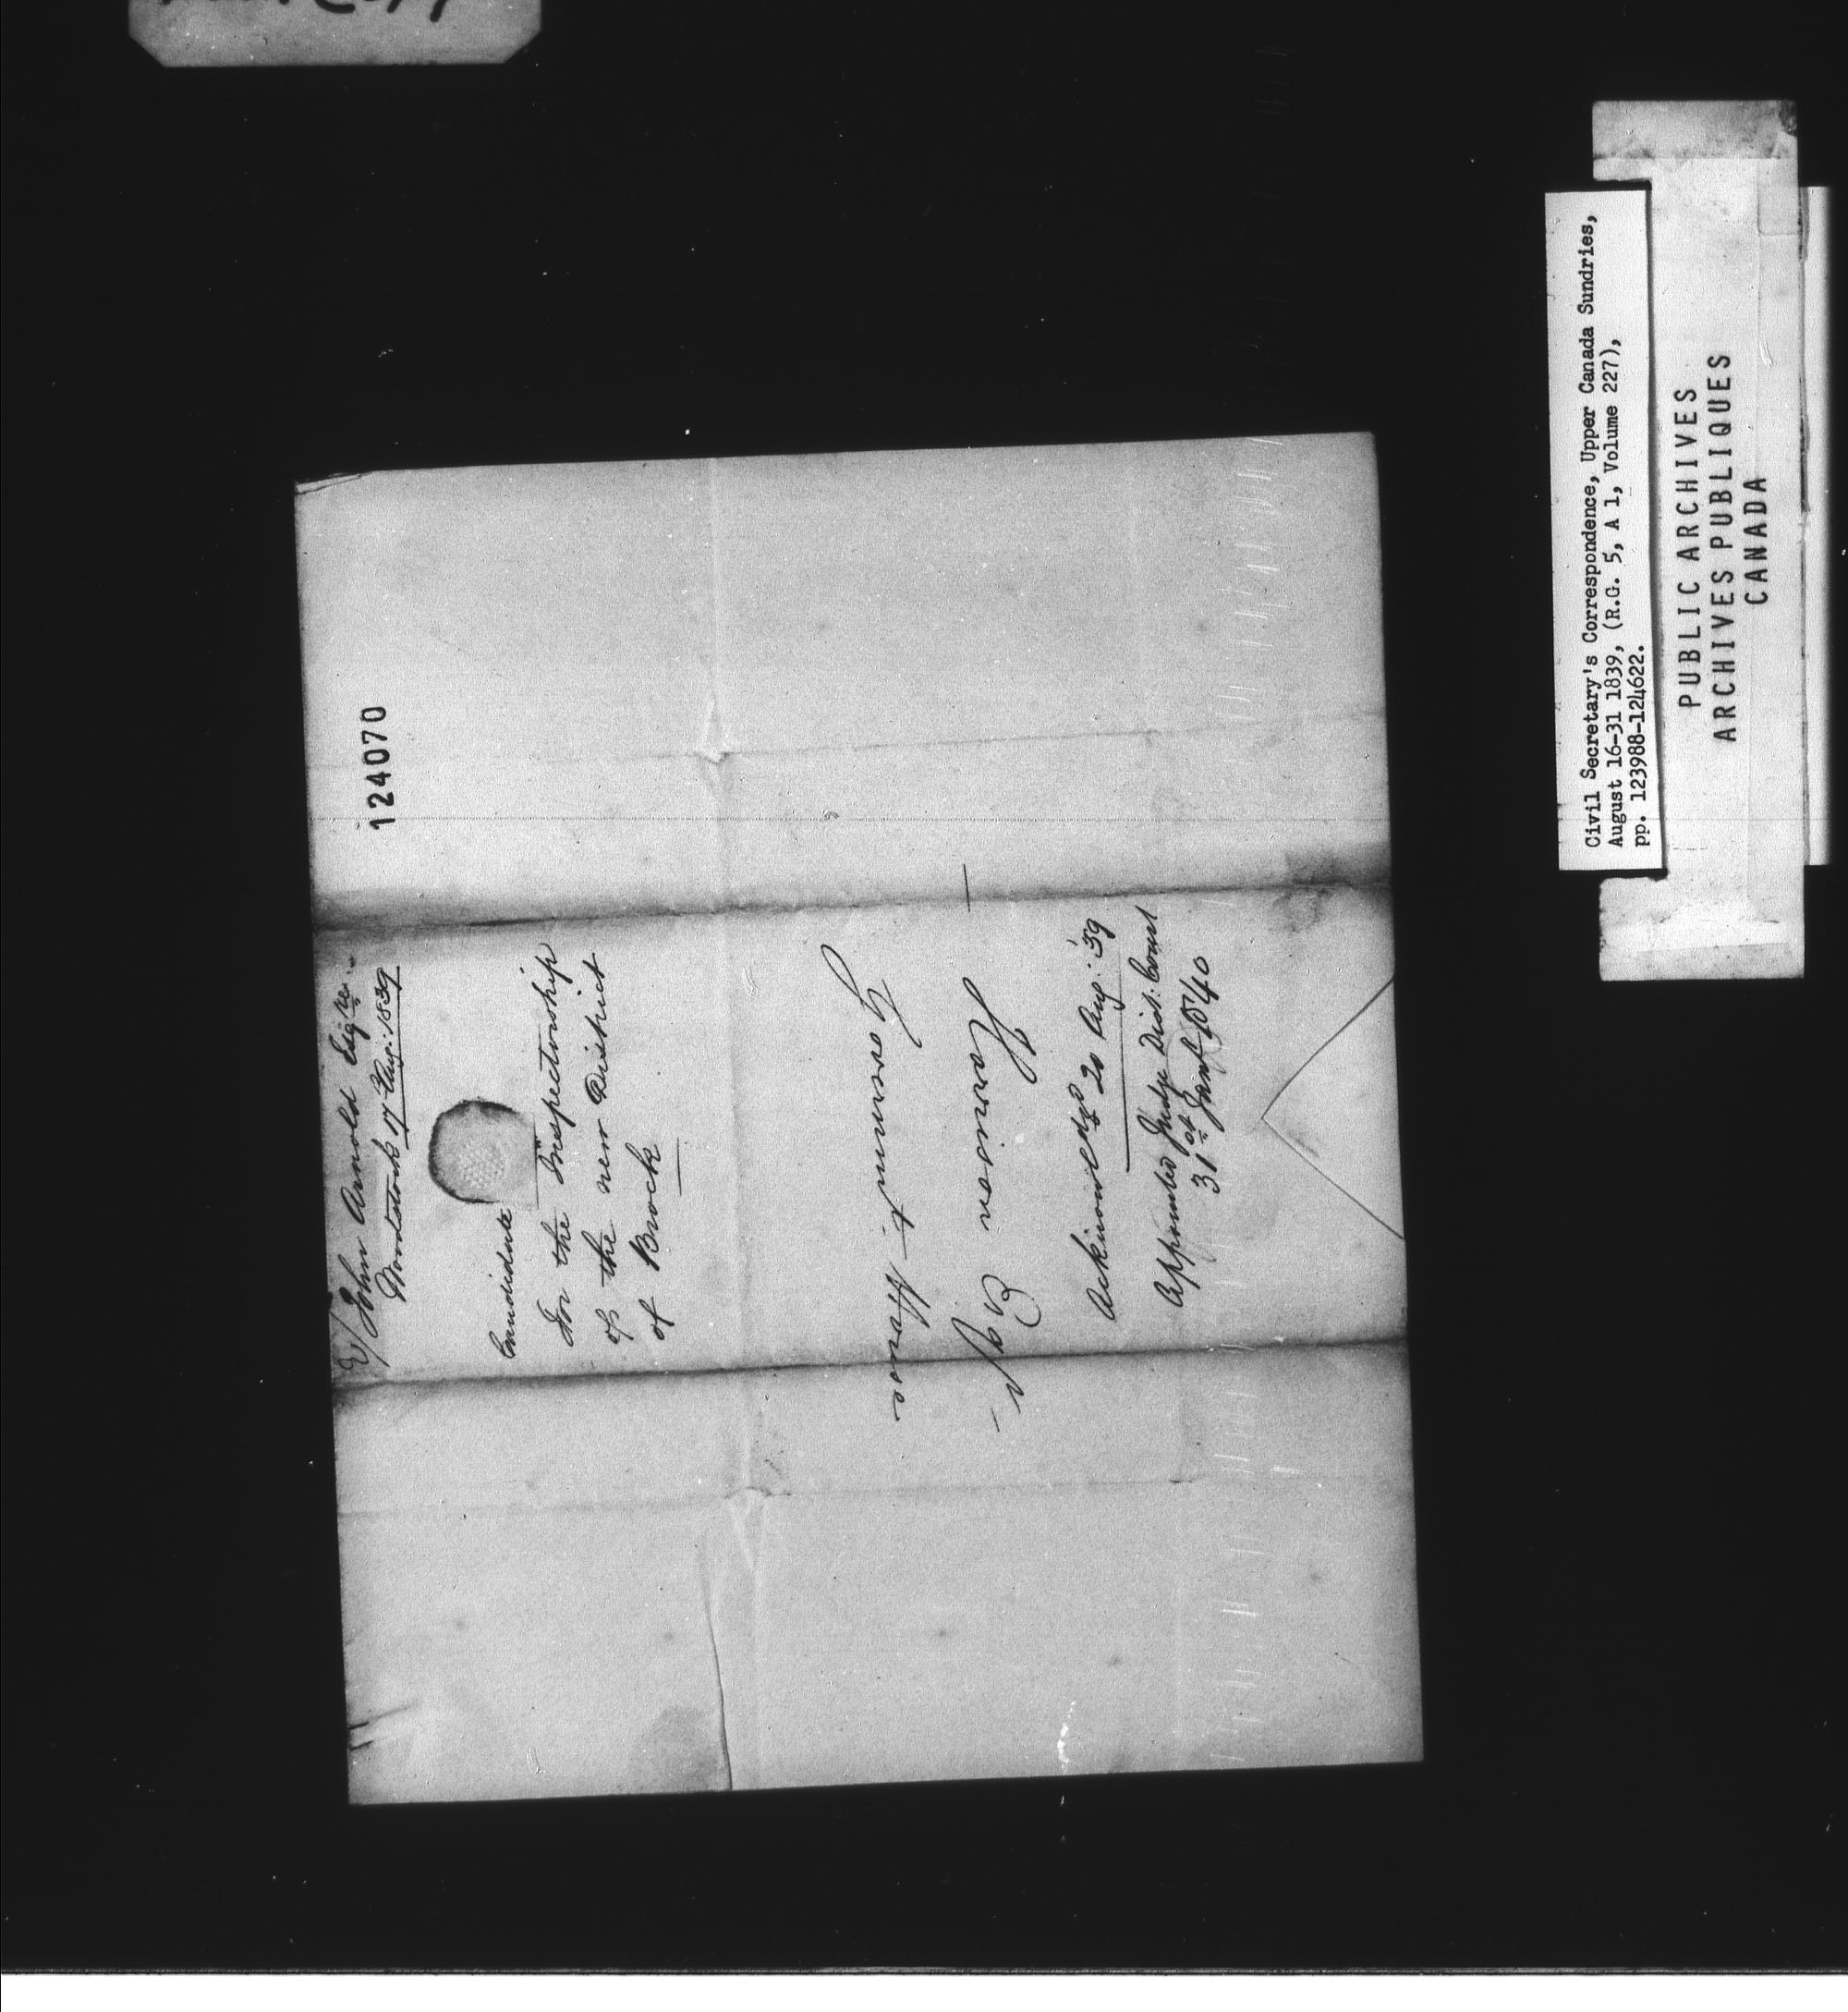 124070
John Arnold Esqre.
Woodstock 17 Aug: 1839
Candidate
For the Inspectorship
of the new District
of Brock
Governmt House
Harrison Esqr
Acknowledged 20 Aug: '39
Appointed Judge Dist: Court
31st Jany 1840
Civil Secretary's Correspondence, Upper Canada Sundries,
August 16-31 1839, (R.G. 5, A 1, Volume 227),
pp. 123988-124622.
PUBLIC ARCHIVES
ARCHIVES PUBLIQUES
CANADA